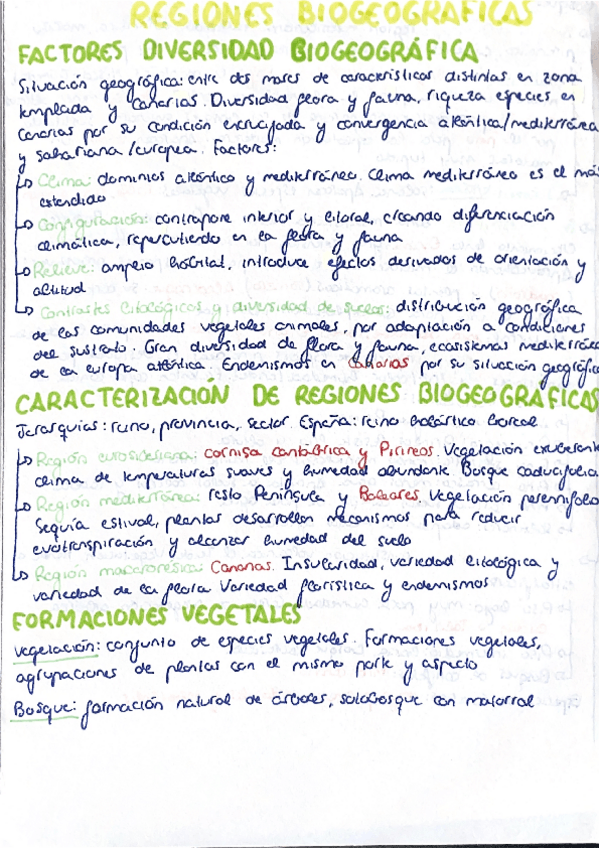 REGIONES BIOGEOGRAFICAS
FACTORES DIVERSIDAD BIOGEOGRÁFICA
Situación geográfica: entre dos mares de características distintas en zona
templada y Canarias. Diversidad flora y fauna, riqueza especies en
Canarias por su condición encrucijada y convergencia atlántica/mediterránea
y sahariana/europea. Factores:
Clima: dominios atlántico y mediterráneo. Clima mediterráneo es el más
extendido
Configuración: contrapone interior y litoral, creando diferenciación
climática, repercutiendo en la flora y fauna
Relieve: amplio, introduce efectos derivados de orientación y
altitud
Contrastes litológicos y diversidad de suelos: distribución geográfica
de las comunidades vegetales animales, por adaptación a condiciones
del sustrato. Gran diversidad de flora y fauna, ecosistemas mediterráneo
de la europa atlántica. Endemismos en Canarias por su situación geográfica
CARACTERIZACIÓN DE REGIONES BIOGEOGRÁFICAS
Jerarquías: reino, provincia, sector. España: reino holártico boreal.
Región eurosiberiana: cornisa cantábrica y Pirineos. Vegetación exuberante
clima de temperaturas suaves y humedad abundante. Bosque caducifolia
Región mediterránea: resto Península y Baleares. Vegetación perennifolia
Sequía estival, plantas desarrollan mecanismos para reducir
evotranspiración y alcanzar humedad del suelo
Región macaronésica: Canarias. Insularidad, variedad litológica y
variedad de la flora. Variedad florística y endemismos
FORMACIONES VEGETALES
Vegetación: conjunto de especies vegetales. Formaciones vegetales,
agrupaciones de plantas con el mismo porte y aspecto
Bosque: formación natural de árboles, sotobosque con matorral